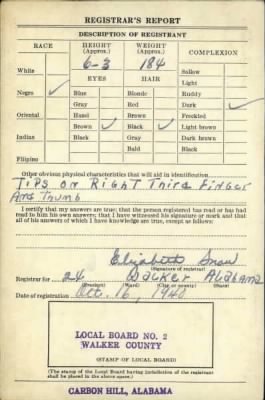 REGISTRAR'S REPORT
DESCRIPTION OF REGISTRANT
RACE HEIGHT (Approx.) WEIGHT (Approx.) COMPLEXION
6-3 184
White Sallow
EYES HAIR Light
Negro ✓ Blue Blonde Ruddy
Gray Red Dark ✓
Oriental Hazel Brown Freckled
Brown ✓ Black ✓ Light brown
Indian Black Gray Dark brown
Bald Black
Filipino
Other obvious physical characteristics that will aid in identification
TIPS ON RIGHT THIRD FINGER
AND THUMB
I certify that my answers are true; that the person registered has read or has had
read to him his own answers; that I have witnessed his signature or mark and that
all of his answers of which I have knowledge are true, except as follows:
Elizabeth Snow
(Signature of registrar)
Registrar for 24 Walker Alabama
(Precinct) (Ward) (City or county) (State)
Date of registration Oct. 16, 1940
LOCAL BOARD NO. 2
WALKER COUNTY
(STAMP OF LOCAL BOARD)
(The stamp of the Local Board having jurisdiction of the registrant
shall be placed in the above space.)
CARBON HILL, ALABAMA